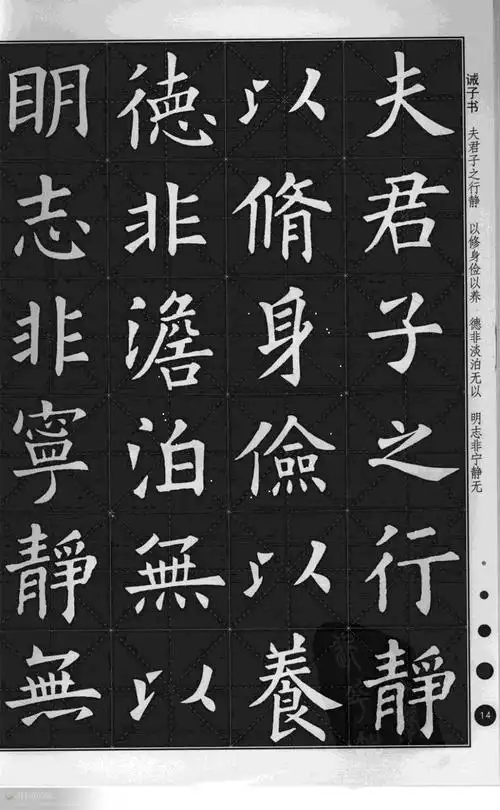 夫君子之行靜
以脩身儉以養
德非澹泊無以
明志非寧靜無
诫子书 夫君子之行静 以修身俭以养 德非淡泊无以 明志非宁静无
14